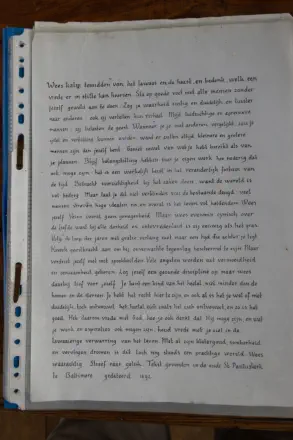 Wees kalm temidden van het lawaai en de haast, en bedenk welk een
vrede er in stilte kan heersen. Sta op goede voet met alle mensen zonder
jezelf geweld aan te doen. Zeg je waarheid rustig en duidelijk en luister
naar anderen ook zij vertellen hun verhaal. Mijd luidruchtige en agressieve
mensen zij belasten de geest. Wanneer je je met anderen vergelijkt, zou je
ijdel en verbitterd kunnen worden want er zullen altijd kleinere en grotere
mensen zijn dan jezelf bent. Geniet zowel van wat je hebt bereikt als van
je plannen. Blijf belangstelling hebben voor je eigen werk hoe nederig dat
ook moge zijn het is een werkelijk bezit in het veranderlijk fortuin van
de tijd. Betracht voorzichtigheid bij het zaken doen want de wereld is
vol bedrog. Maar laat je dit niet verblinden voor de bestaande deugd veel
mensen streven hoge idealen na en overal is het leven vol heldendom Wees
jezelf. Veins vooral geen genegenheid. Maar wees evenmin cynisch over
de liefde want bij alle dorheid en ontevredenheid is zij eeuwig als het gras
Volg de loop der jaren met gratie verlang niet naar een tijd die achter je ligt
Kweek geestkracht aan om bij onverwachte tegenslag beschermd te zijn Maar
verdriet jezelf niet met spookbeelden Vele angsten worden uit vermoeidheid
en eenzaamheid geboren. Leg jezelf een gezonde discipline op maar wees
daarbij lief voor jezelf. Je bent een kind van het heelal niet minder dan de
bomen en de sterren Je hebt het recht hier te zijn en ook al is het je wel of niet
duidelijk toch ontvouwt het heelal zich zoals het zich ontvouwt en zo is het
goed. Heb daarom vrede met God, hoe je ook denkt dat Hij moge zijn en wat
je werk en aspiraties ook mogen zijn houd vrede met je ziel in de
lawaaierige verwarring van het leven Met al zijn klatergoud, somberheid
en vervlogen dromen is dit toch nog steeds een prachtige wereld. Wees
voorzichtig Streef naar geluk. Tekst gevonden in de oude St Pauluskerk
te Baltimore gedateerd 1692